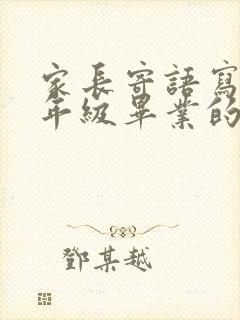 家長寄語寫
年級畢業的
鄧某越